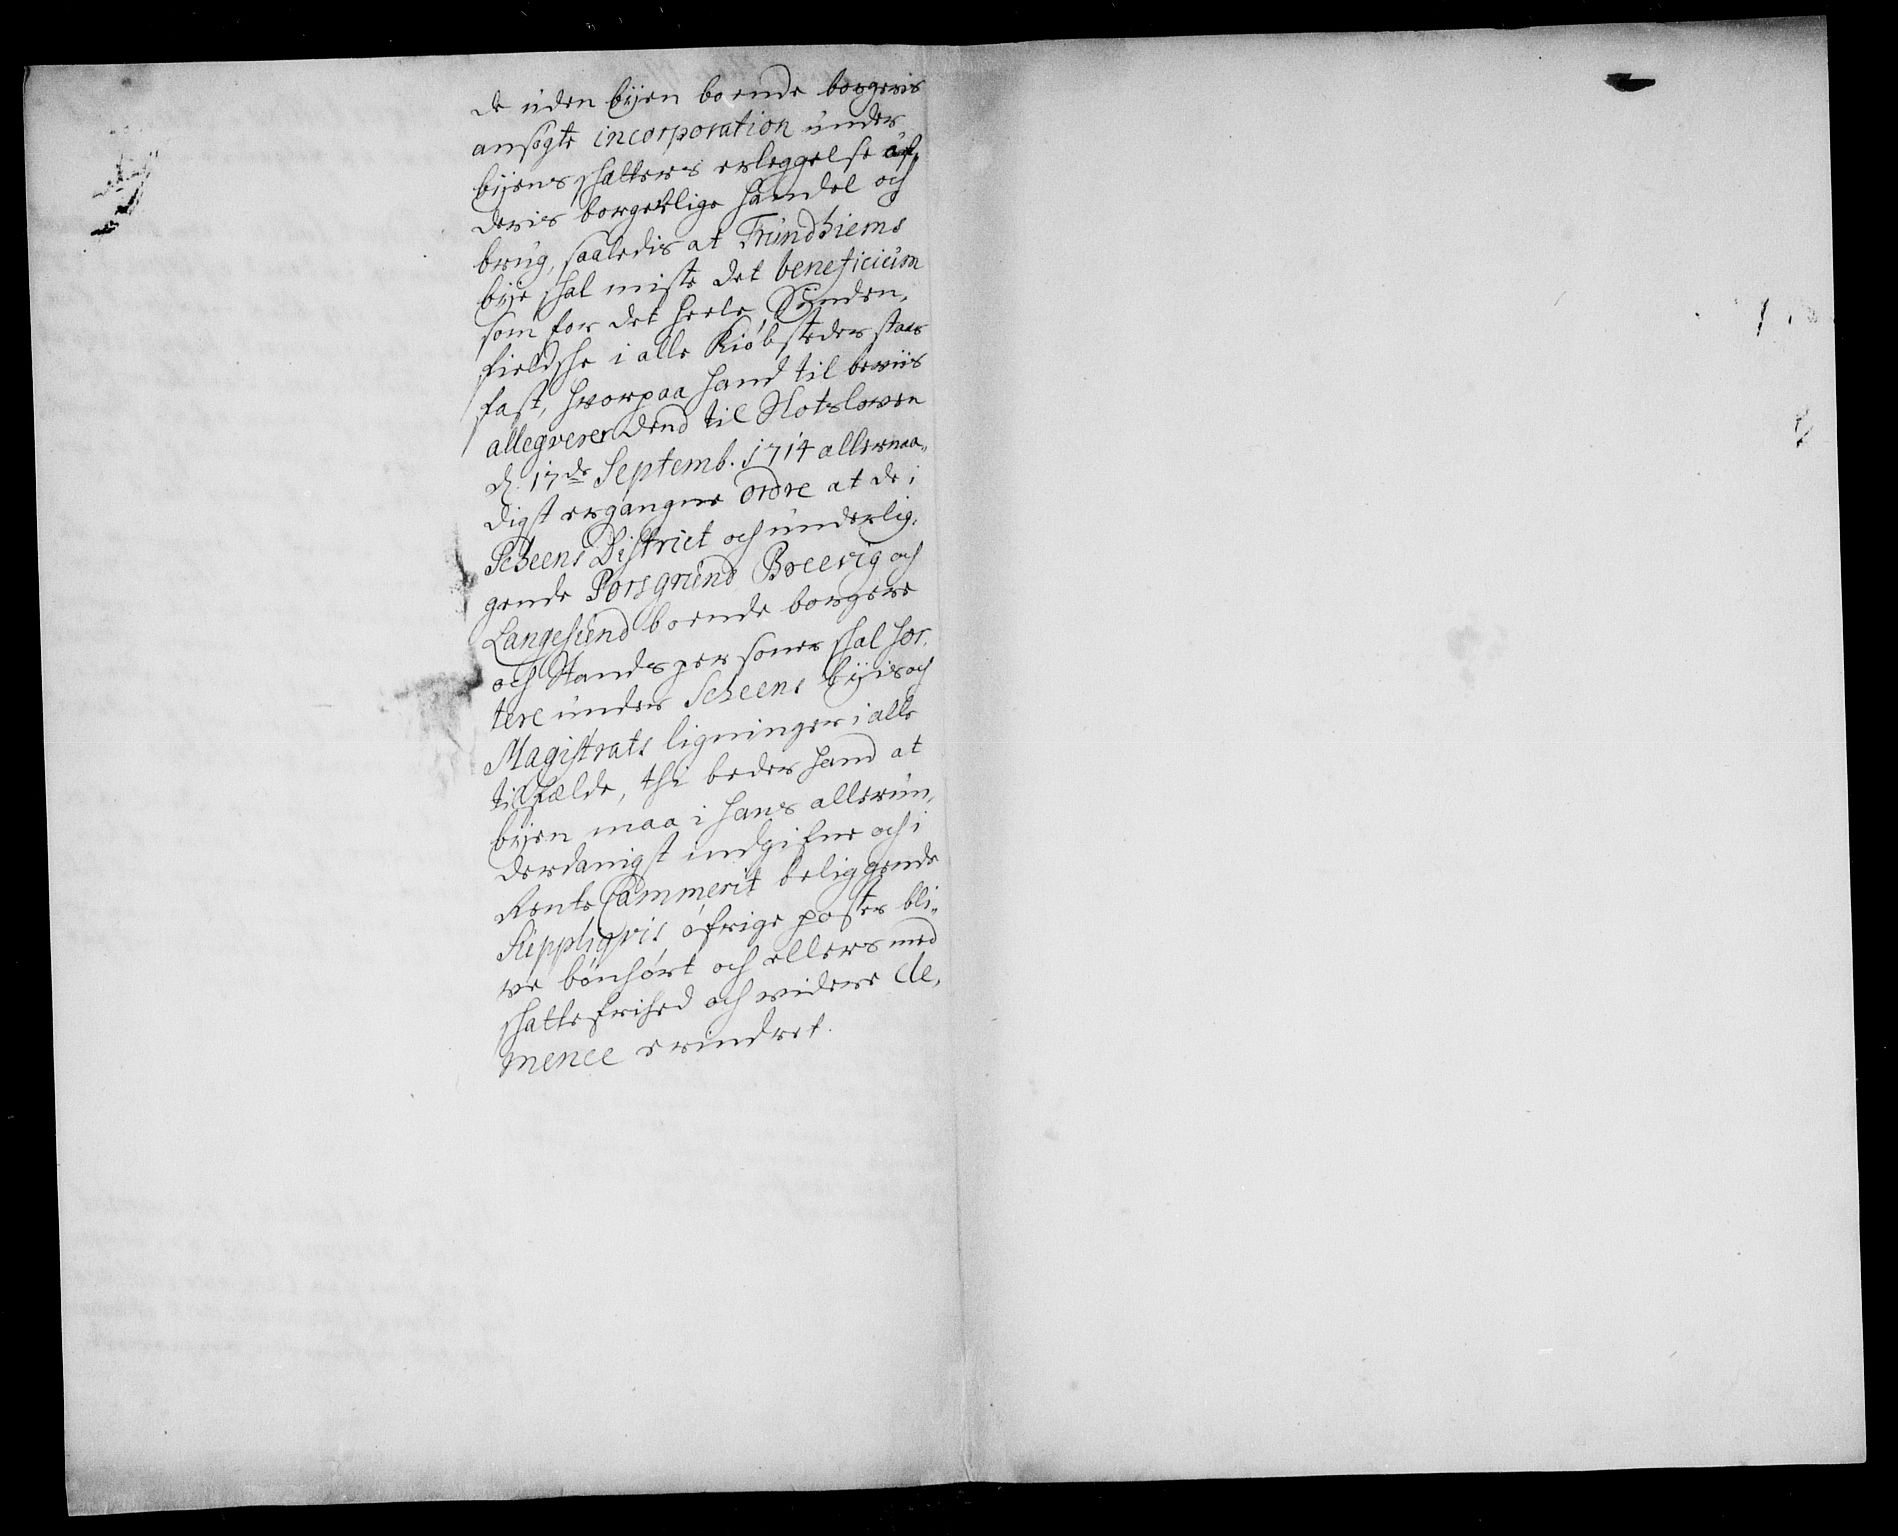 de uden byen boende borgeris
ansøgte incorporation under
byens skatters erleggelse af
deris borgerlige handel och
brug, saaledis at Trundhiems
bye skal miste det beneficium
som for det heele Synden,
fieldske i alle Kiøbsteder staar
fast, hvorpaa hand til beviis
allegverer dend til Slotsloven
d. 17de Septemb. 1714 allernaa,,
digst ergangne Ordre at de i
Scheens District och underlig,
gende Porsgrund Breevig och
Langesund boende borgere
och Standspersoner skal sor,
tere under Scheens byis och
Magistrats ligninger i alle
tilfælde, thi beder hand at
byen maa i hans allerun,
derdanigst indgifne och i
Rente Cammerit beliggende
Suppliqvis øfrige poster bli,,
ve bønhørt och ellers med
skattefrihed och videre cle,
mence erindret.